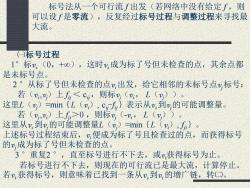 标号法从一个可行流f出发（若网络中没有给定f，则
可以设f是零流），反复经过标号过程与调整过程来寻找最
大流。
㈠标号过程
1°标vₛ（0，+∞），这时vₛ成为标号但未检查的点，其余点都
是未标号点。
2°从标了号但未检查的点vᵢ出发，给它相邻的未标号点vⱼ标号；
若（vᵢ,vⱼ）上fᵢⱼ＜cᵢⱼ，则标vⱼ（vᵢ，L（vⱼ））。
这里L（vⱼ）=min｛L（vᵢ），cᵢⱼ-fᵢⱼ｝表示从vₛ到vⱼ的可能调整量。
若（vⱼ,vᵢ）上fⱼᵢ＞0，则标vⱼ（-vᵢ，L（vⱼ））。
这里从vₛ到vⱼ的可能调整量L（vⱼ）=min｛L（vᵢ）,fⱼᵢ｝。
上述标号过程结束后，vᵢ便成为标了号且检查过的点。而获得标号
的vⱼ成为标了号但未检查的点。
3°重复2°，直至标号进行不下去、或vₜ获得标号为止。
若标号进行不下去，则现在的可行流已是最大流，计算停止。
若vₜ获得标号，则意味着已找到一条从vₛ到vₜ的增广链，转㈡。